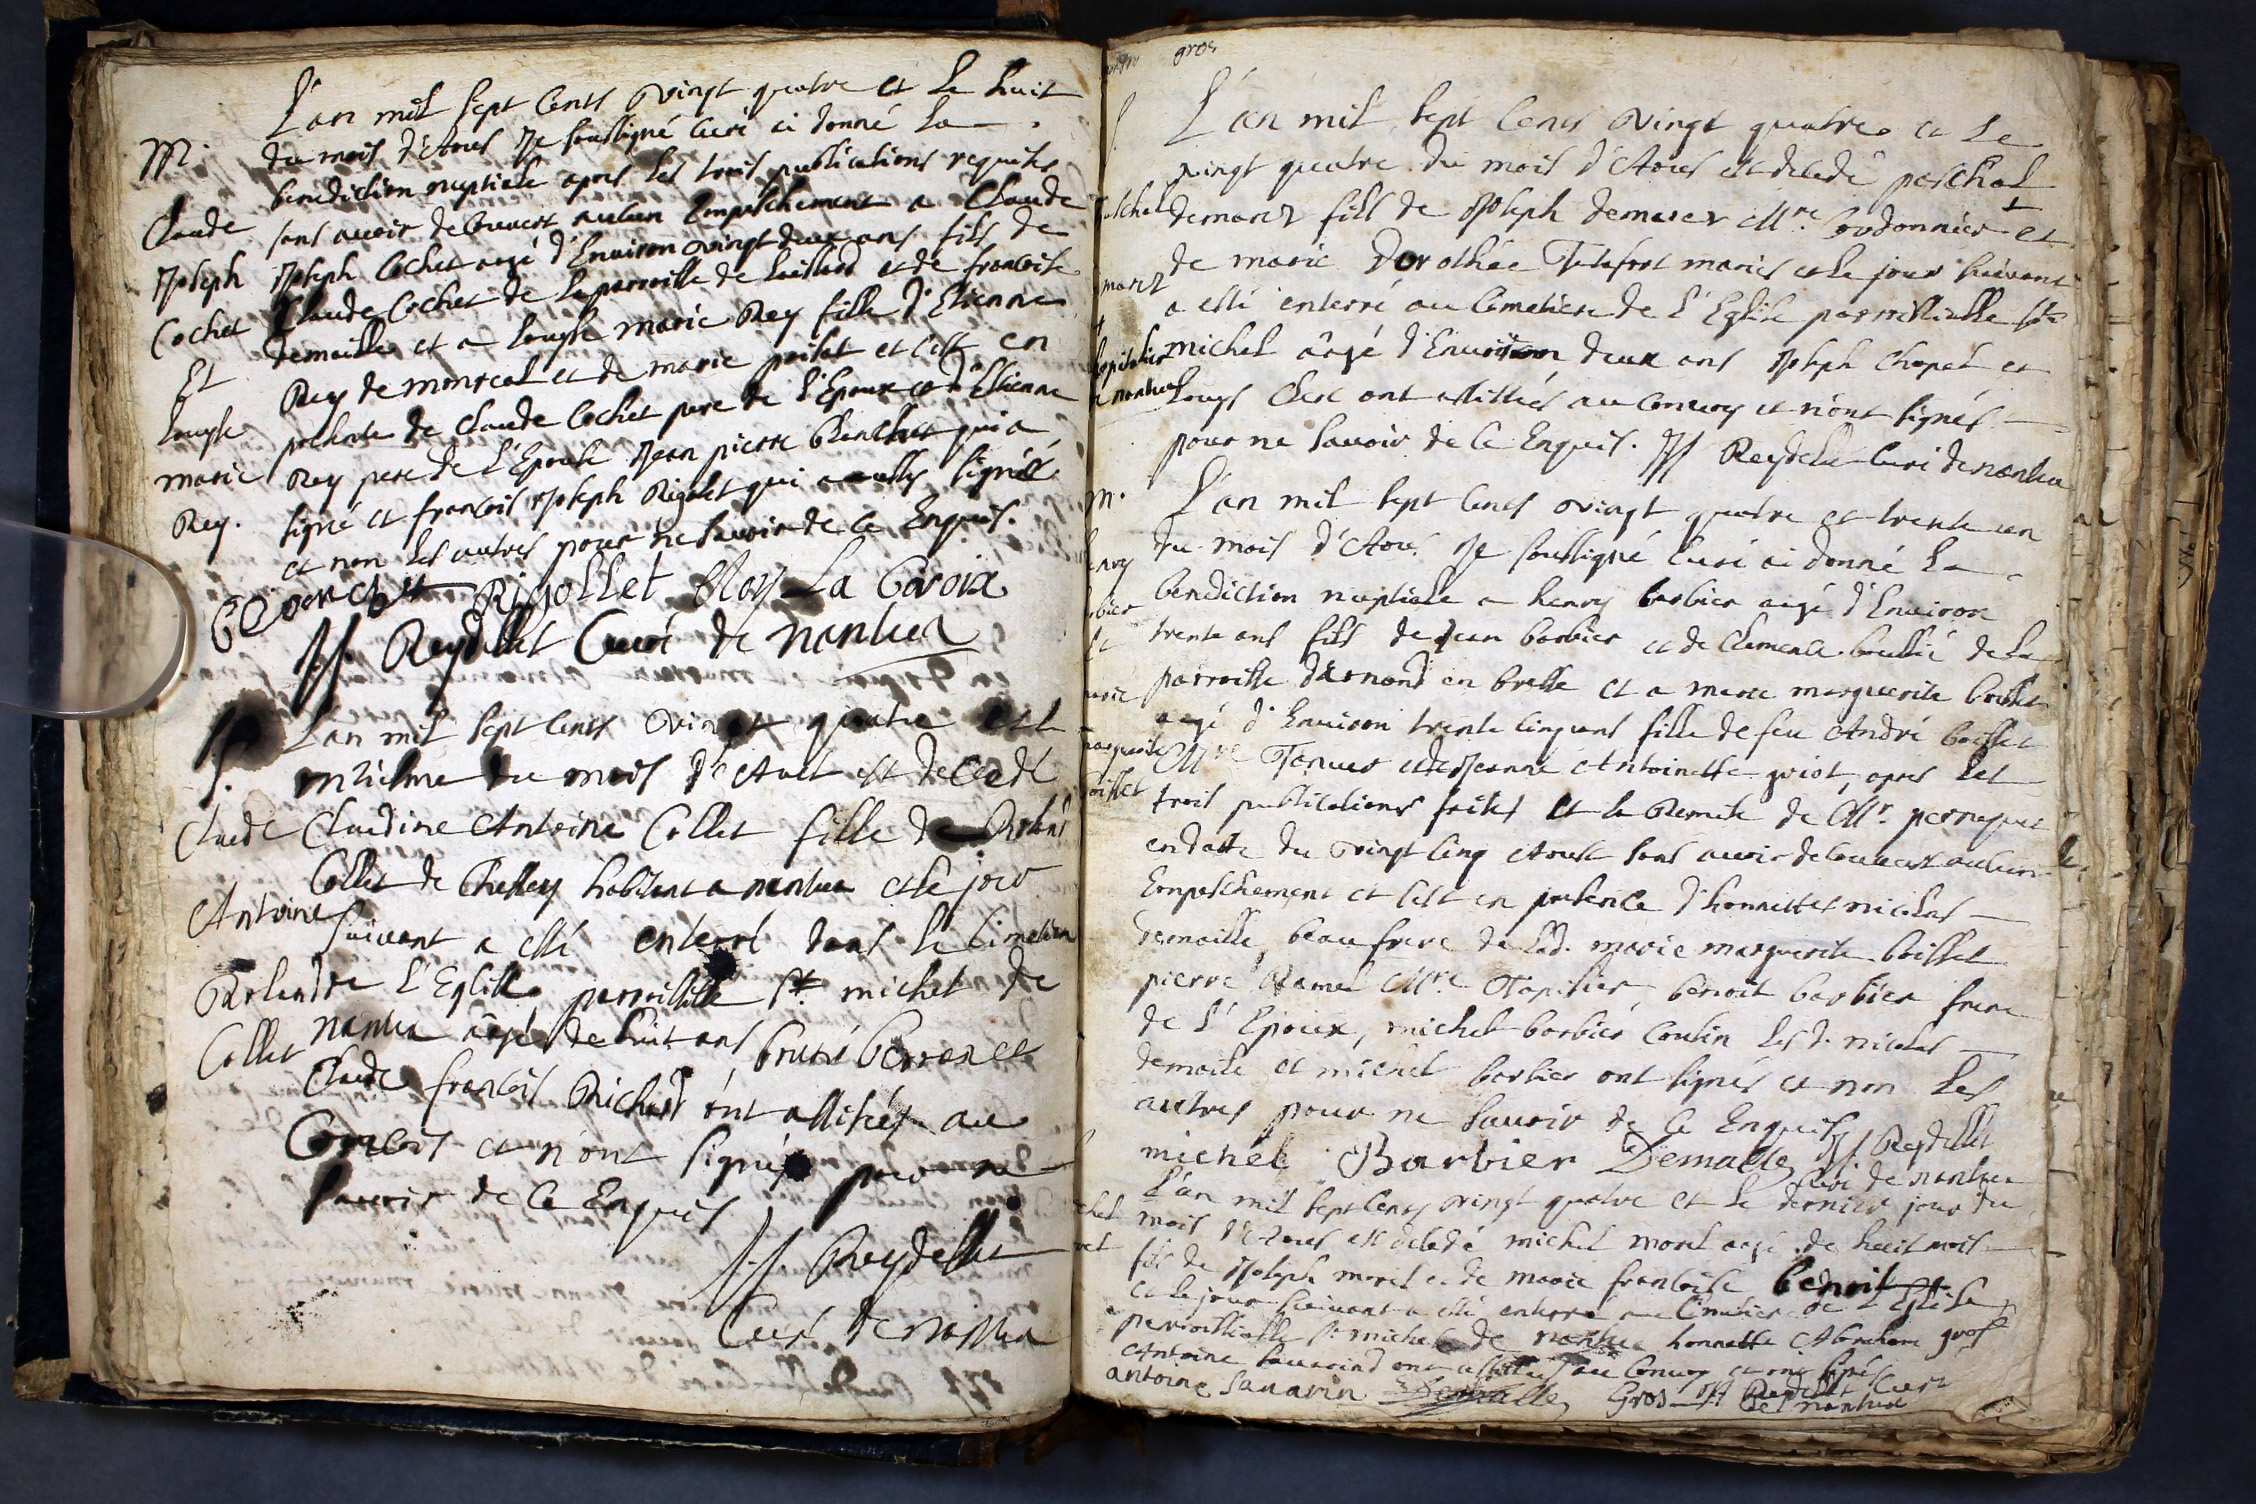 L'an mil sept cents vingt quatre et le huit
M. du mois d'Aous Je soussigné curé ai donné la
benediction nuptiale apres les trois publications requites
Claude sans avoir decouvert aucun Empeschement a Claude
Joseph Joseph Cochet aagé d'Environ vingt deux ans fils de
Cochet Claude Cochet de la parroisse de et de francoise
Et demaille et a Louyse marie Rey fille d'Etienne
Louyse Rey de montreal et de marie et c'est en
marie presente de Claude Cochet pere de l'Epoux et d'Etienne
Rey. Rey pere de l'Epouse Jean pierre Blanchet qui a
signé et francois Joseph Rigolet qui a aussy signé
et non les autres pour ne savoir de ce Enquis.
Blanchet Rigollet Eloy La Croix
JJ Reydellet Curé de nantua
L'an mil sept cents vingt quatre et l
S. onziesme du mois d'Aout est decedé
Claude Claudine Antoine Collet fille de Roland
Collet de habitant a nantua et le jour
Antoine suivant a esté enterré dans le Cimetiere
Rolandre de l'Eglise parroissialle St. michel de
Collet nantua aagé de huit ans
Claude francois Richard ont assistés au
Convois et n'ont signés pour ne
savoir de ce Enquis
JJ. Reydellet
Curé de nantua
gros
L'an mil sept cents vingt quatre et le
vingt quatre du mois d'Aous est decedé paschal
paschal demarez fils de Joseph demarez Mre. Cordonnier et
de marie Dorothée maries et le jour suivant
marez a esté enterré au Cimetiere de l'Eglise parroissialle St
michel aagé d'Environ deux ans Joseph Chapel et
Louys Clerc ont assistés au convoy et n'ont signés
pour ne savoir de ce Enquis. JJ Reydellet curé de nantua
M. L'an mil sept cents vingt quatre et trente un
du mois d'Aous Je soussigné curé ai donné la
henry benediction nuptiale a henry barbier aagé d'Environ
barbier trente ans fils de Jean barbier et de Clemence de la
Et parroisse d'Arnand en bresse et a marie marguerite boisset
marie aagé d'Environ trente cinq ans fille de feu André boisset
marguerite Mre Taneur et de Jeanne Antoinette goiot, apres les
boisset trois publications faites et la Remise de Mr. perruquet
en datte du vingt cinq Aoust sans avoir decouvert aucun
Empeschement et c'est en presence d'honnettes nicolas
demaille, beau frere de lad. marie marguerite boisset
pierre Mre Tapisier, benoit barbier frere
de l'Epoux, michel barbier cousin lesd. nicolas
demaille et michel barbier ont signés et non les
autres pour ne savoir de ce Enquis
michel Barbier Demaille JJ Reydellet
Curé de nantua
L'an mil sept cents vingt quatre et le dernier jour du
mois d'Aous est decedé michel morel aagé de huit mois
fils de Joseph morel et de marie francoise benoit
et le jour suivant a esté enterré au Cimetiere de l'Eglise
parroissialle St michel de nantua honnette Abraham gros
Antoine savarind ont assistés au Convoy et ont signés
antoine savarin Demaille Gros JJ Reydellet Curé
de nantua